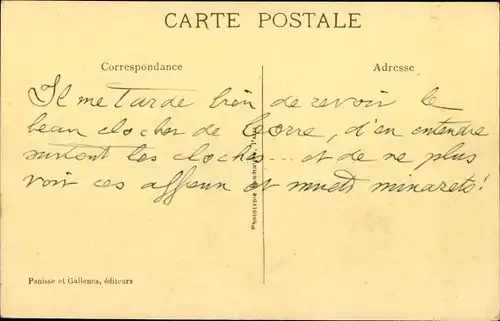 CARTE POSTALE
Correspondance
Adresse
Il me tarde bien de revoir le
beau clocher de , d'en entendre
surtout les cloches... et de ne plus
voir ces affreux et muets minarets!
Panisse et Gallenca, éditeurs